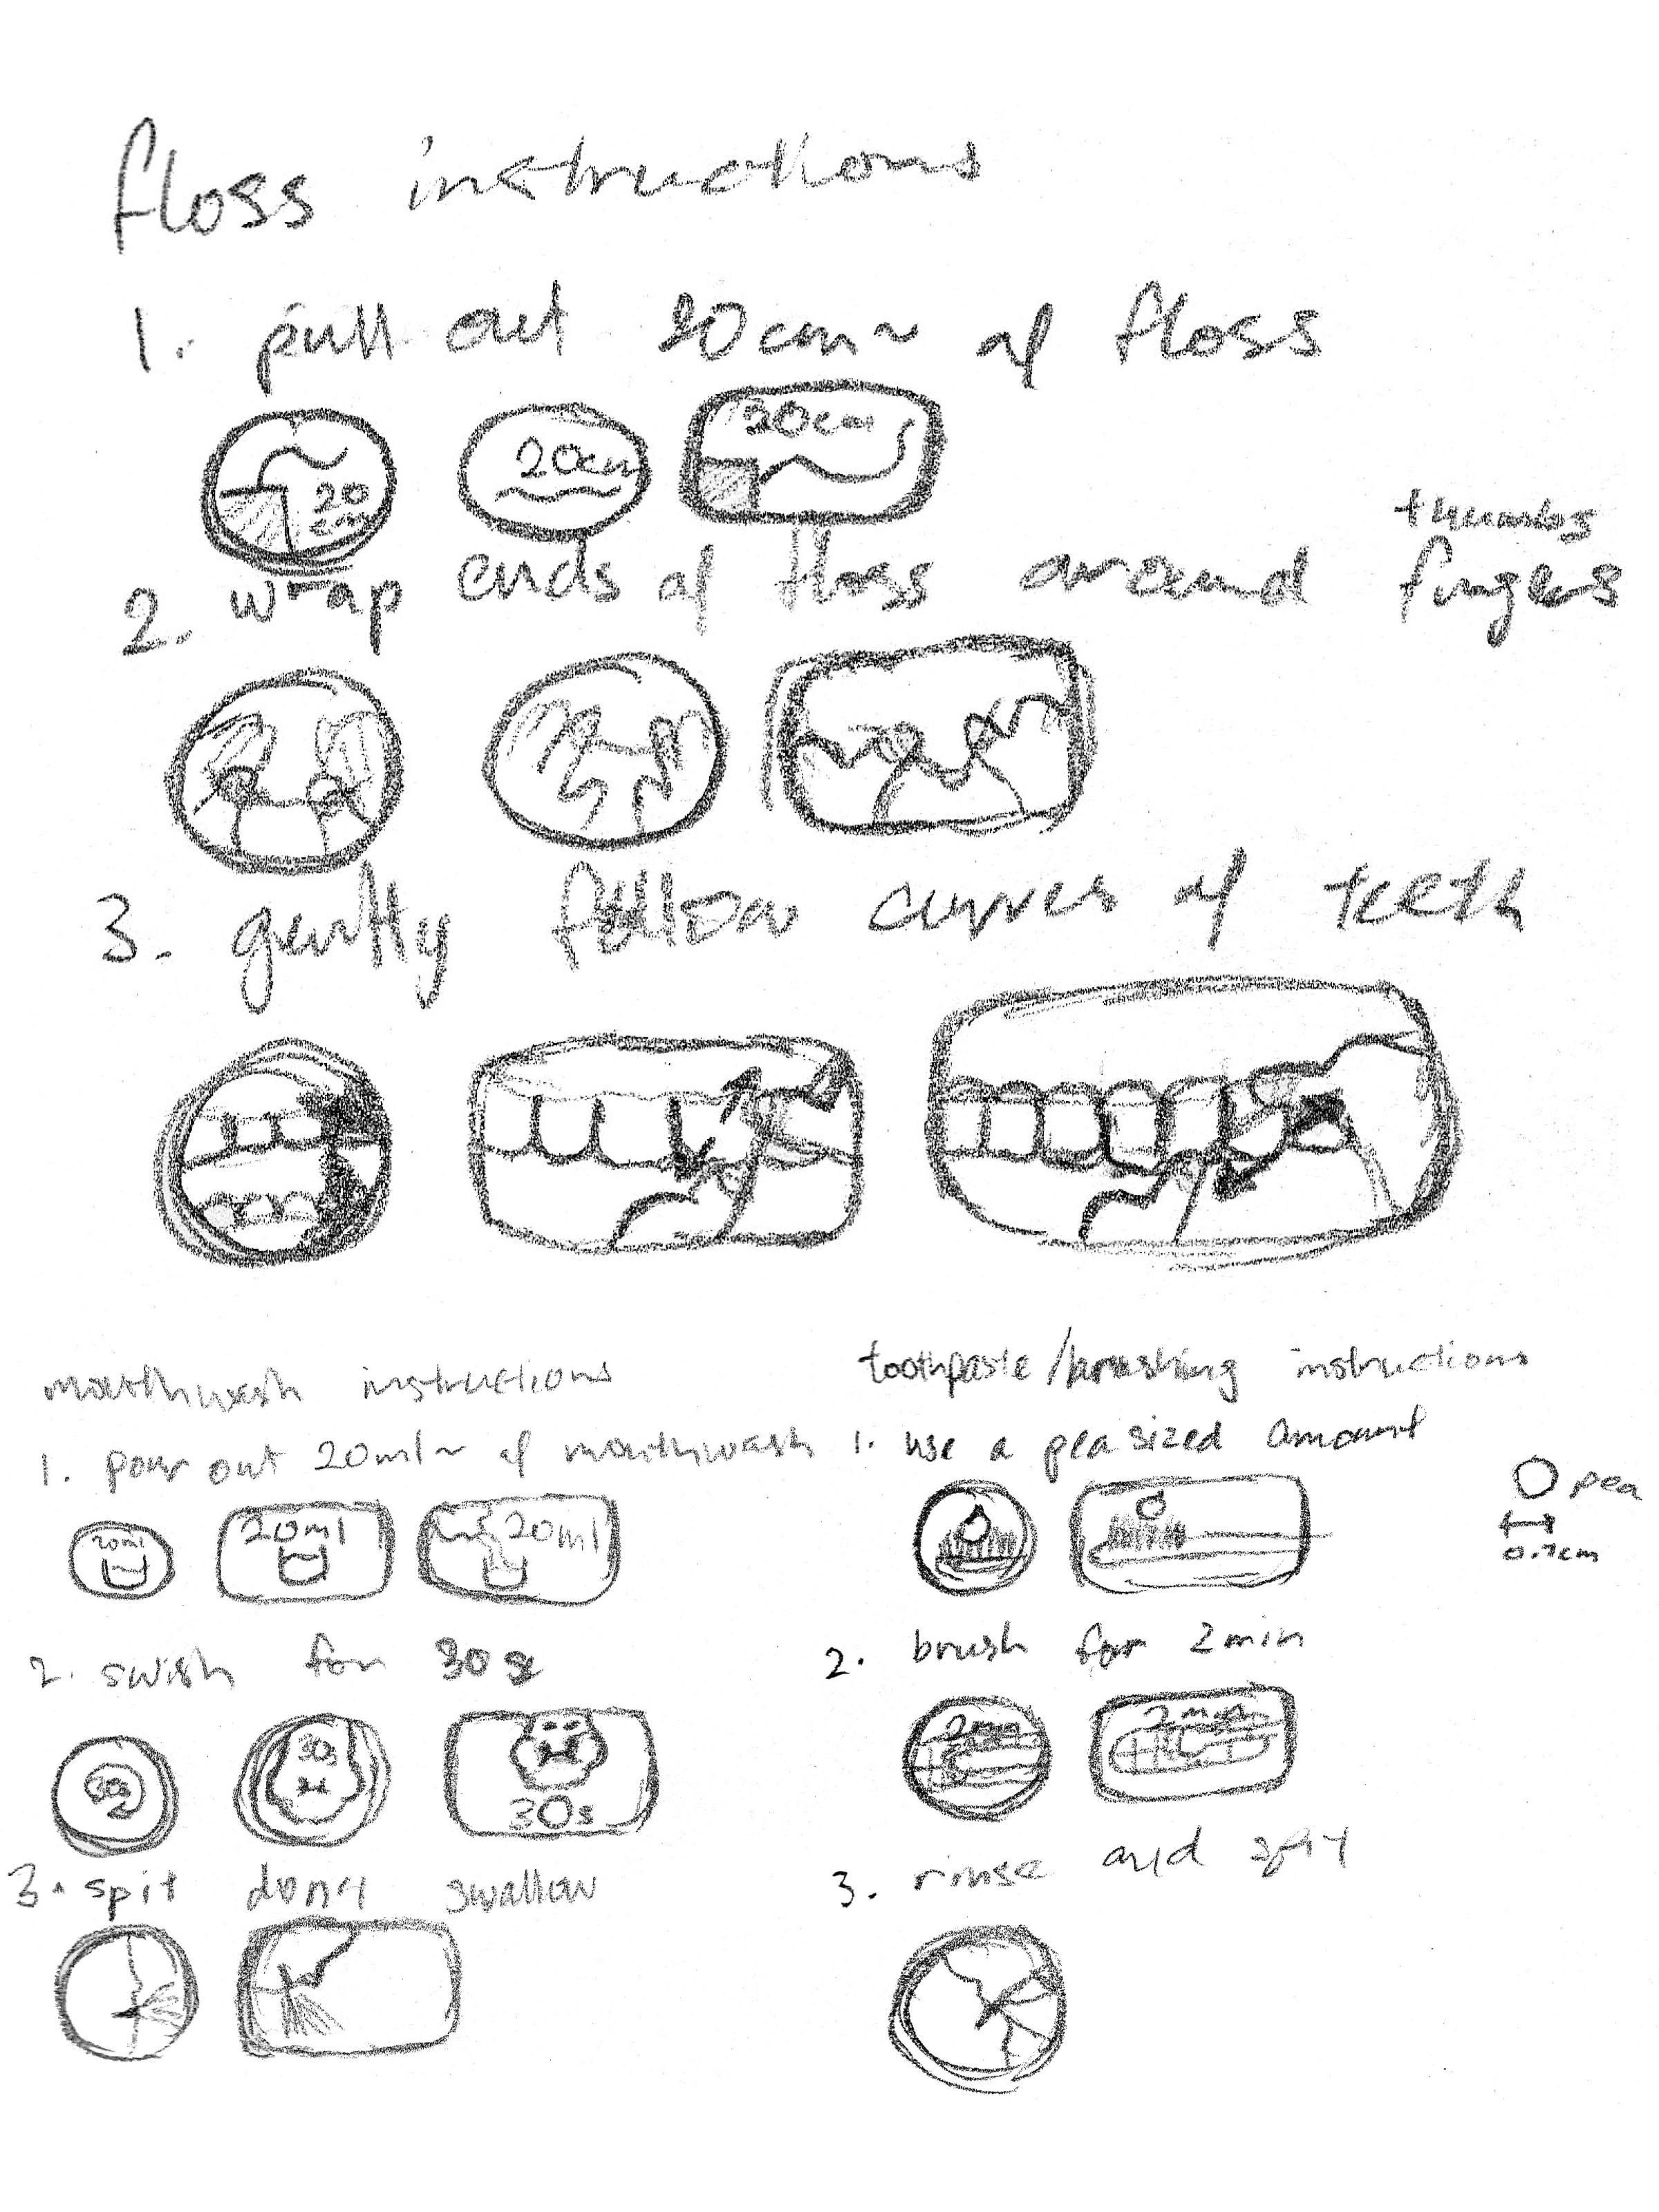 floss instructions
1. pull out 20cm~ of floss
20 cm
20cm
20cm
thumbs
2. wrap ends of floss around fingers
3. gently follow curves of teeth
mouthwash instructions
1. pour out 20ml~ of mouthwash
20ml
20ml
20ml
2. swish for 30s
30s
30s
30s
3. spit don't swallow
toothpaste/brushing instructions
1. use a pea sized amount
pea
2. brush for 2min
2min
2min
3. rinse and spit